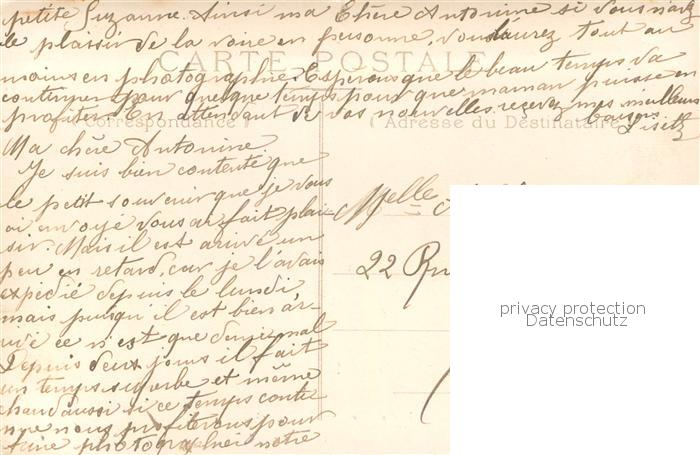 petite Suzanne. Ainsi ma Chère Antonine si vous n'avez
le plaisir de la voire en personne, vous l'aurez tout au
CARTE POSTALE
moins en photographie. Esperons que le beau temps va
continuer pour quelque temps pour que maman puisse en
profiter. En attendant de vos nouvelles recevez mes meilleurs
baisers
Lisette
Correspondance
(Adresse du Destinataire)
Ma chère Antonine.
Je suis bien contente que
le petit souvenir que je vous
ai envoyé vous ai fait plai-
sir. Mais il est arrivé un
peu en retard, car je l'avais
expédié depuis le lundi
mais puisqu'il est bien ar-
rivé ce n'est que demi mal
Depuis deux jours il fait
un temps superbe et même
chaud aussi si ce temps conti-
nue nous profiterons pour
faire photographier notre
Melle
22 Ru
privacy protection
Datenschutz